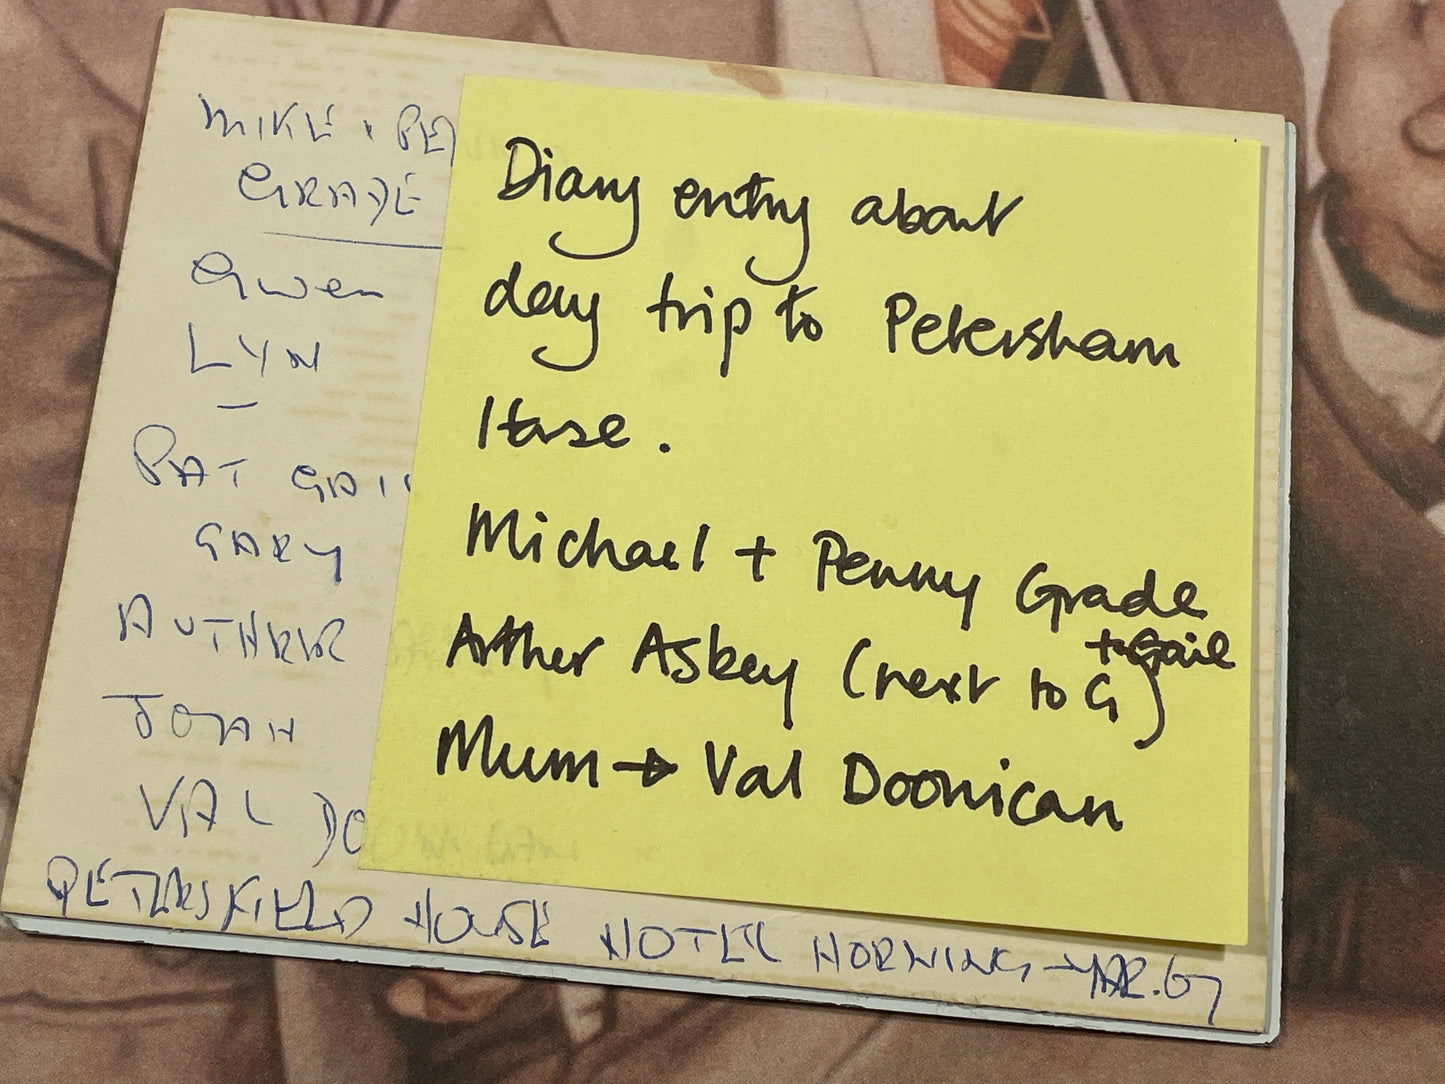 MIKE + PE
GRADE
Gwen
LYN
—
PAT GAI
GARY
AUTHER
JOAN
VAL DO
PETERSFIELD HOUSE HOTEL HORNING - MAR. 67
Diary entry about
day trip to Petersham
Hse.
Michael + Penny Grade
+ Gail
Arther Askey (next to G)
Mum → Val Doonican